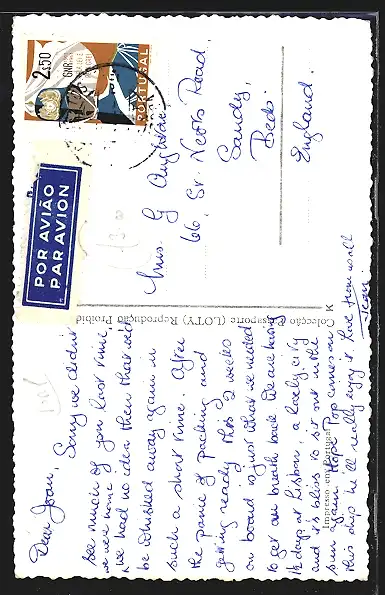 Dear Joan,
Sorry we didn't
see much of you last time
we were home
we had no idea then that we'd
be whisked away again in
such a short time. After
the panic of packing and
getting ready this 2 weeks
on board is just what we needed
to get our breath back. We are having
1½ days at Lisbon, a lovely city
and it's bliss to sit out in the
sun again. Hope Pop comes on
this ship he'll really enjoy it. Love from us all
Jean.
Colecção Passaporte (LOTY) Reprodução Proibida
K
Impresso em Portugal
POR AVIÃO
PAR AVION
2$50
PORTUGAL
Mrs. G
66, St. Neots Road,
Sandy,
Beds.
England.